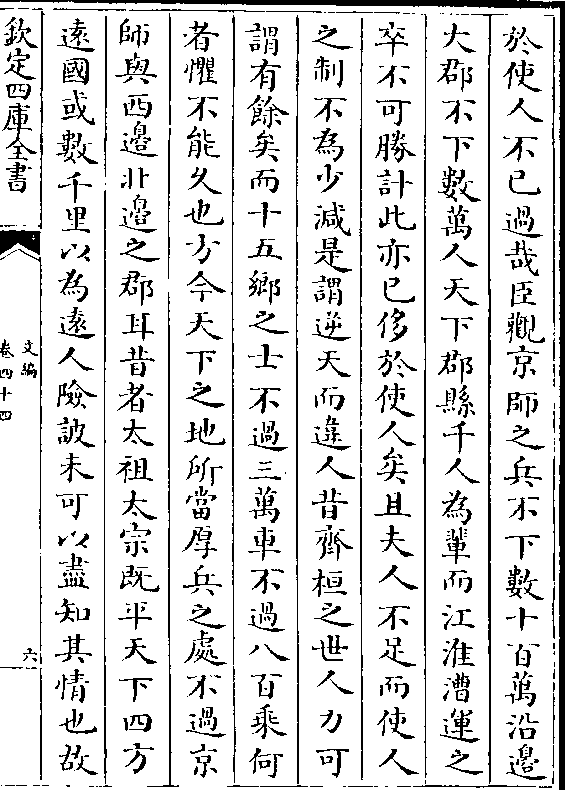 於使人不已過哉臣觀京師之兵不下數十百萬沿邊
大郡不下數萬人天下郡縣千人為輩而江淮漕運之
卒不可勝計此亦已侈於使人矣且夫人不足而使人
之制不為少減是謂逆天而違人昔齊桓之世人力可
謂有餘矣而十五鄉之士不過三萬車不過八百乘何
者懼不能久也方今天下之地所當厚兵之處不過京
師與西邊北邊之郡耳昔者太祖太宗既平天下四方
遠國或數千里以為遠人險詖未可以盡知其情也故
欽定四庫全書
文編
卷四十四
六